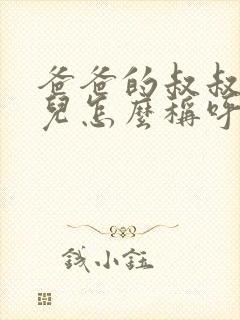 爸爸的叔叔
兒怎麼稱呼
錢小鈺